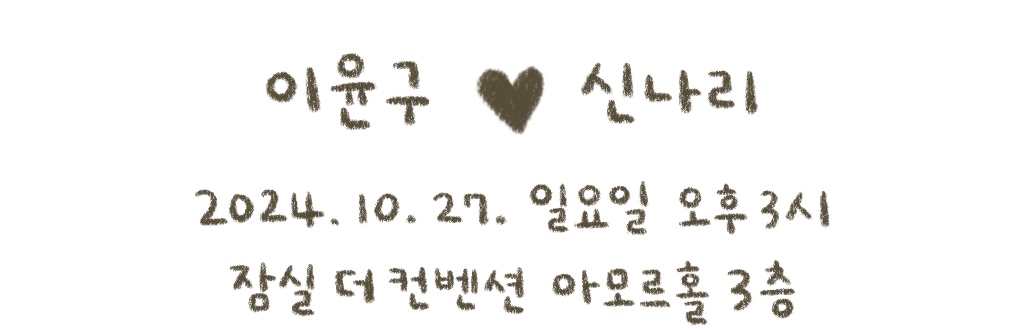 이윤구 ♥ 신나리
2024. 10. 27. 일요일 오후 3시
잠실 더 컨벤션 아모르홀 3층